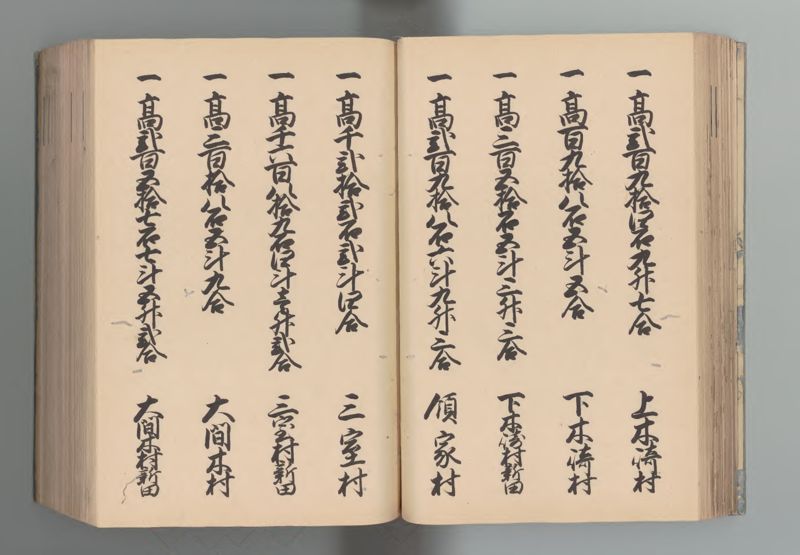 一 高弐百九拾四石九升七合 上木崎村
一 高百九拾八石五斗五合 下木崎村
一 高三百五拾石五斗三升三合 下木崎村新田
一 高弐百九拾八石六斗九升三合 領家村
一 高千弐拾弐石弐斗四合 三室村
一 高千六百八拾九石四斗壱升弐合 三室村新田
一 高三百拾八石五斗九合 大間木村
一 高弐百五拾七石七斗五升弐合 大間木村新田